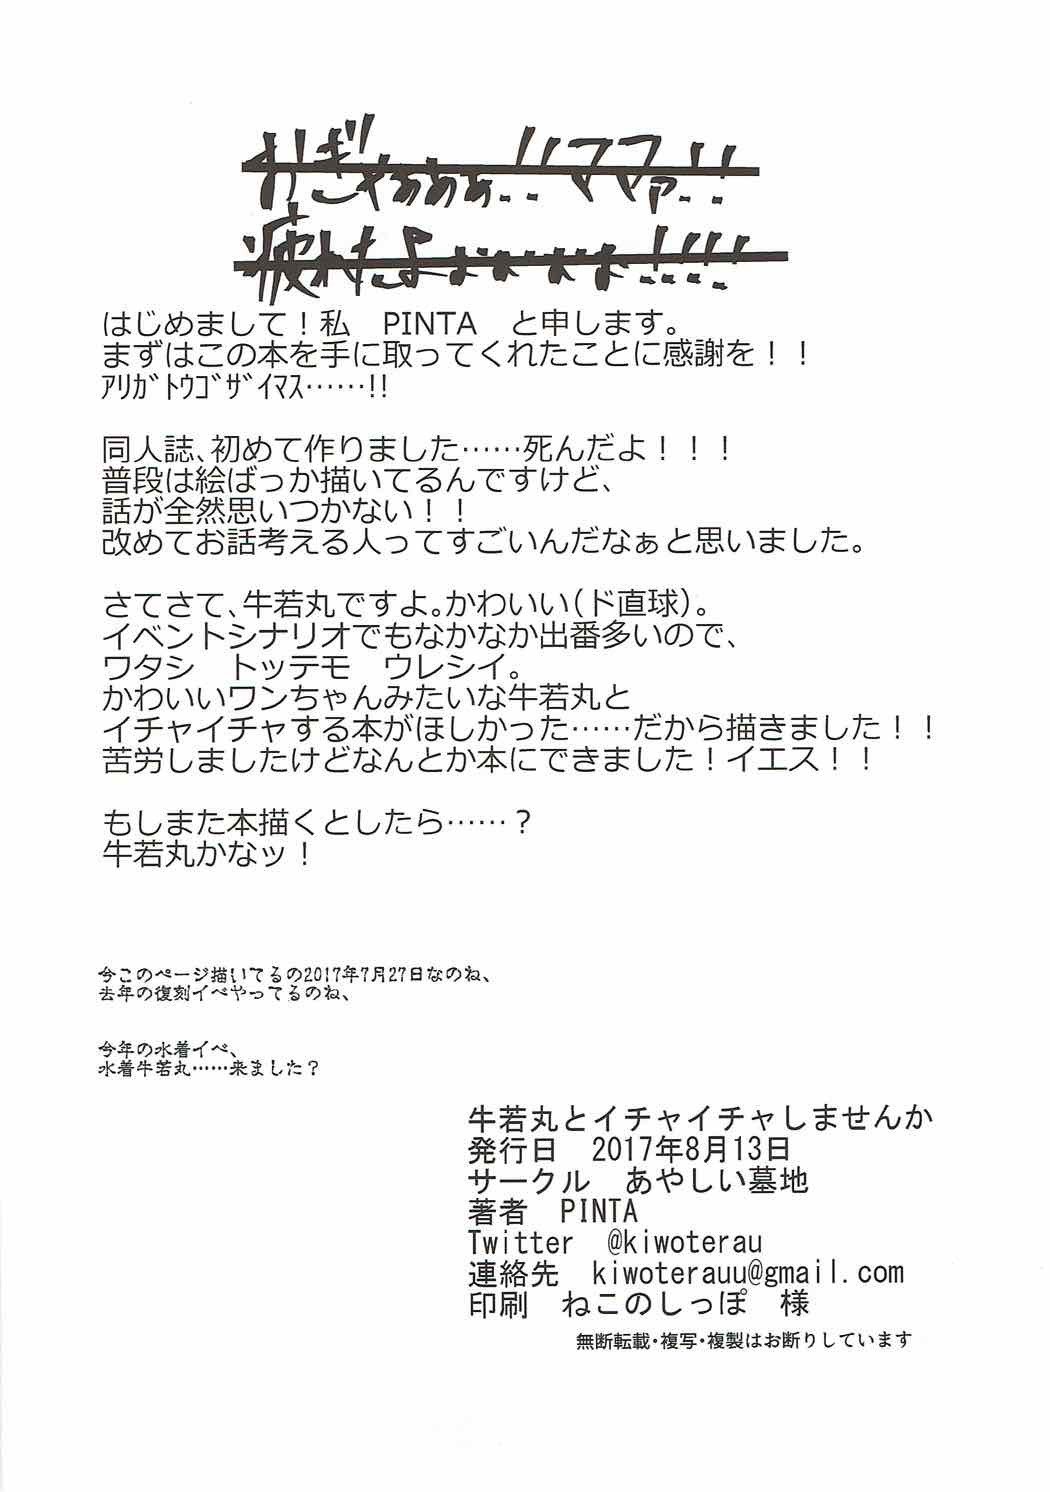 おぎゃぁぁぁ!!ママァ!!
疲れたよぉぉぉぉ!!!!
はじめまして！私　PINTA　と申します。
まずはこの本を手に取ってくれたことに感謝を！！
ｱﾘｶﾞﾄｳｺﾞｻﾞｲﾏｽ……!!
同人誌、初めて作りました……死んだよ！！！
普段は絵ばっか描いてるんですけど、
話が全然思いつかない！！
改めてお話考える人ってすごいんだなぁと思いました。
さてさて、牛若丸ですよ。かわいい（ド直球）。
イベントシナリオでもなかなか出番多いので、
ワタシ　トッテモ　ウレシイ。
かわいいワンちゃんみたいな牛若丸と
イチャイチャする本がほしかった……だから描きました！！
苦労しましたけどなんとか本にできました！イエス！！
もしまた本描くとしたら……？
牛若丸かなッ！
今このページ描いてるの2017年7月27日なのね、
去年の復刻イベやってるのね、
今年の水着イベ、
水着牛若丸……来ました？
牛若丸とイチャイチャしませんか
発行日　2017年8月13日
サークル　あやしい墓地
著者　PINTA
Twitter　@kiwoterau
連絡先　kiwoterauu@gmail.com
印刷　ねこのしっぽ　様
無断転載・複写・複製はお断りしています